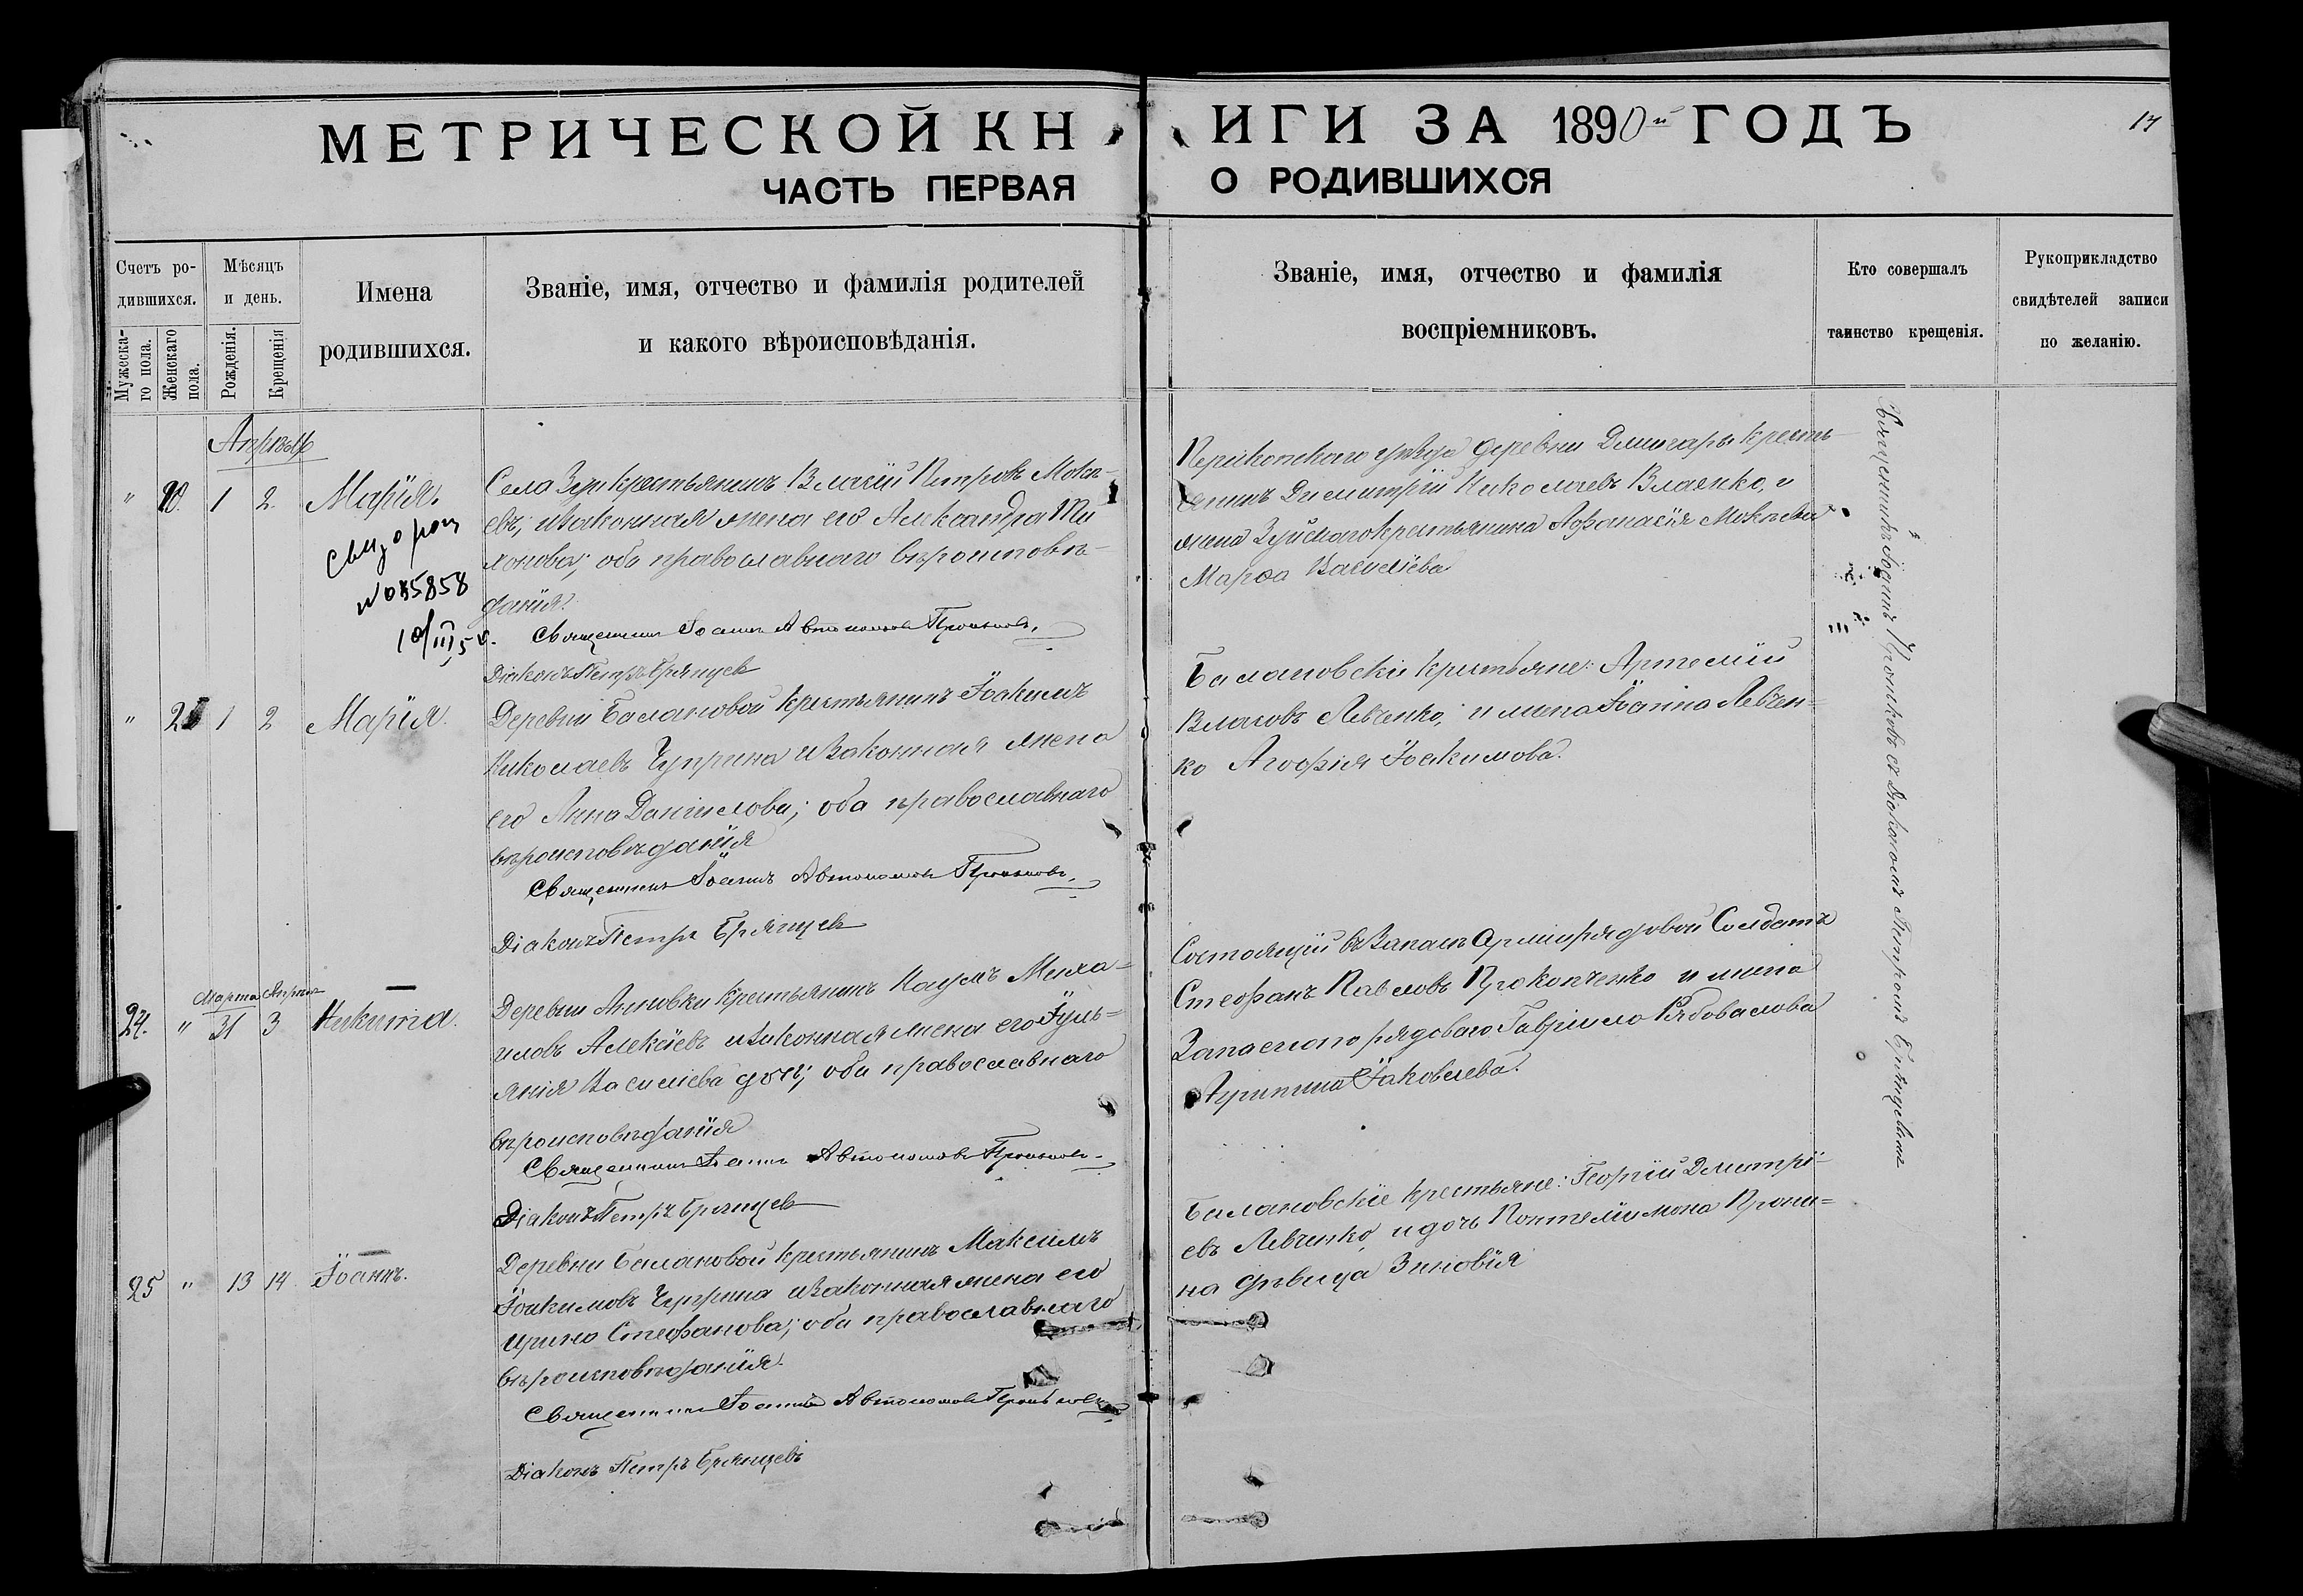 МЕТРИЧЕСКОЙ КНИГИ ЗА 1890й ГОДЪ
17
ЧАСТЬ ПЕРВАЯ О РОДИВШИХСЯ
Счетъ ро-
дившихся.
Мужеска-
го пола.
Женскаго
пола.
Мѣсяцъ
и день.
Рожденія.
Крещенія
Имена
родившихся.
Званіе, имя, отчество и фамилія родителей
и какого вѣроисповѣданія.
Званіе, имя, отчество и фамилія
воспріемниковъ.
Кто совершалъ
таинство крещенія.
Рукоприкладство
свидѣтелей записи
по желанію.
Апрѣль
" 20. 1 2. Марія.
свид о рож
N 085858
Села Зуи крестьянинъ Власій Петровъ Моки-
евъ, и законная жена его Александра Ти
монова; оба православнаго вѣроисповѣ-
данія.
Священникъ Іоаннъ Автономовъ Прольковъ.
Діаконъ Петръ Брянцевъ
Перекопскаго уѣзда деревни крестья-
нинъ Димитрій Николаевъ Власенко, и
жена Зуйскаго крестьянина Аѳанасія
Марѳа Василіева
" 1 2 Марія.
Деревни Балановой крестьянинъ Іоакимъ
Николаевъ Чуприна и законная жена
его Анна Даніилова; оба православнаго
вѣроисповѣданія
Священникъ Іоаннъ Автономовъ Прольковъ.
Діаконъ Петръ Брянцевъ
Балановскіе крестьяне: Артемій
Власовъ Левченко, и жена Іоанна Левчен=
ко Агафія Іоакимова.
Марта Апрѣля
24. " 31 3 Никита.
Деревни Анновки крестьянинъ Наумъ Миха=
иловъ Алексѣевъ и законная жена его Іуль=
янія Василіева дочь; оба православнаго
вѣроисповѣданія
Священникъ Іоаннъ Автономовъ Прольковъ.
Діаконъ Петръ Брянцевъ
Состоящій въ Запасѣ Арміи рядовой Солдатъ
Стефанъ Павловъ Прокопченко и жена
Запаснаго рядоваго Гавріила
Агрипина Іаковлева.
25 " 13 14 Іоаннъ.
Деревни Балановой крестьянинъ Максимъ
Іоакимовъ Чуприна и законная жена его
Ирина Стефанова; оба православнаго
вѣроисповѣданія.
Священникъ Іоаннъ Автономовъ Прольковъ
Діаконъ Петръ Брянцевъ
Балановскіе крестьяне: Георгій Димитрі-
евъ Левченко и дочь Пантелимона Прони=
на дѣвица Зиновія
Священникъ Іоаннъ Прольковъ съ Діакономъ Петромъ Брянцевымъ